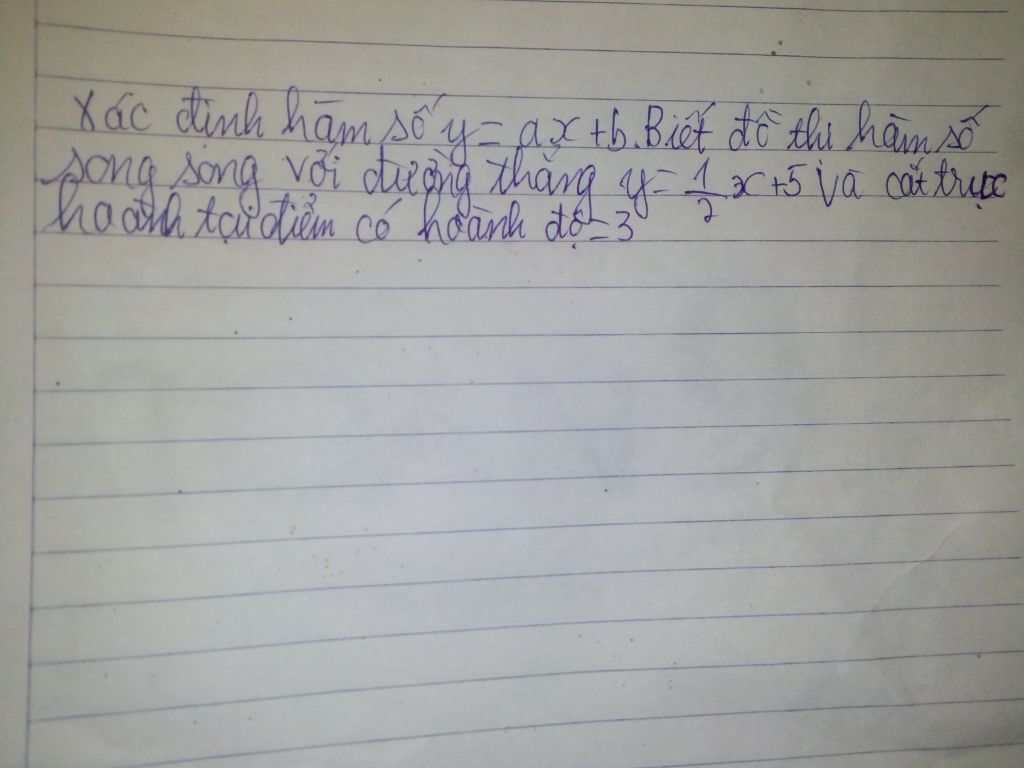 Xác định hàm số y = ax + b. Biết đồ thi hàm số
song song với đường thẳng y = 1/2 x + 5 và cắt trục
hoành tại điểm có hoành độ = 3